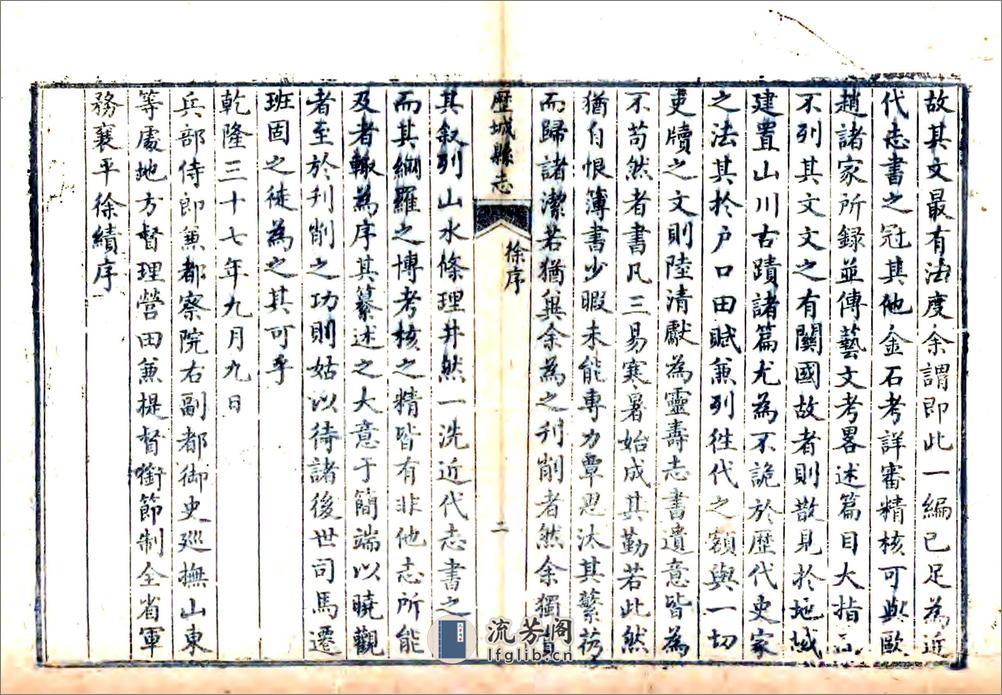 故其文最有法度余謂即此一編已足為近
代志書之冠其他金石考詳審精核可與歐
趙諸家所録並傳藝文考畧述篇目大指而
不列其文文之有關國故者則散見於地域
建置山川古蹟諸篇尤為不詭於歷代史家
之法其於户口田賦兼列往代之額與一切
吏牘之文則陸清獻為靈壽志書遺意皆為
不苟然者書凡三易寒暑始成其勤若此然
猶自恨簿書少暇未能專力覃思汰其繁
而歸諸潔若猶冀余為之刋削者然余獨
歴城縣志
徐序
二
其叙列山水條理井然一洗近代志書之
而其網羅之博考核之精皆有非他志所能
及者輙為序其纂述之大意于簡端以曉觀
者至於刋削之功則姑以待諸後世司馬遷
班固之徒為之其可乎
乾隆三十七年九月九日
兵部侍郎兼都察院右副都御史廵撫山東
等處地方督理營田兼提督銜節制全省軍
務襄平徐績序
流芳阁
lfglib.cn